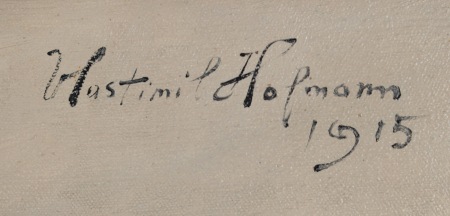 Wlastimil Hofmann
1915